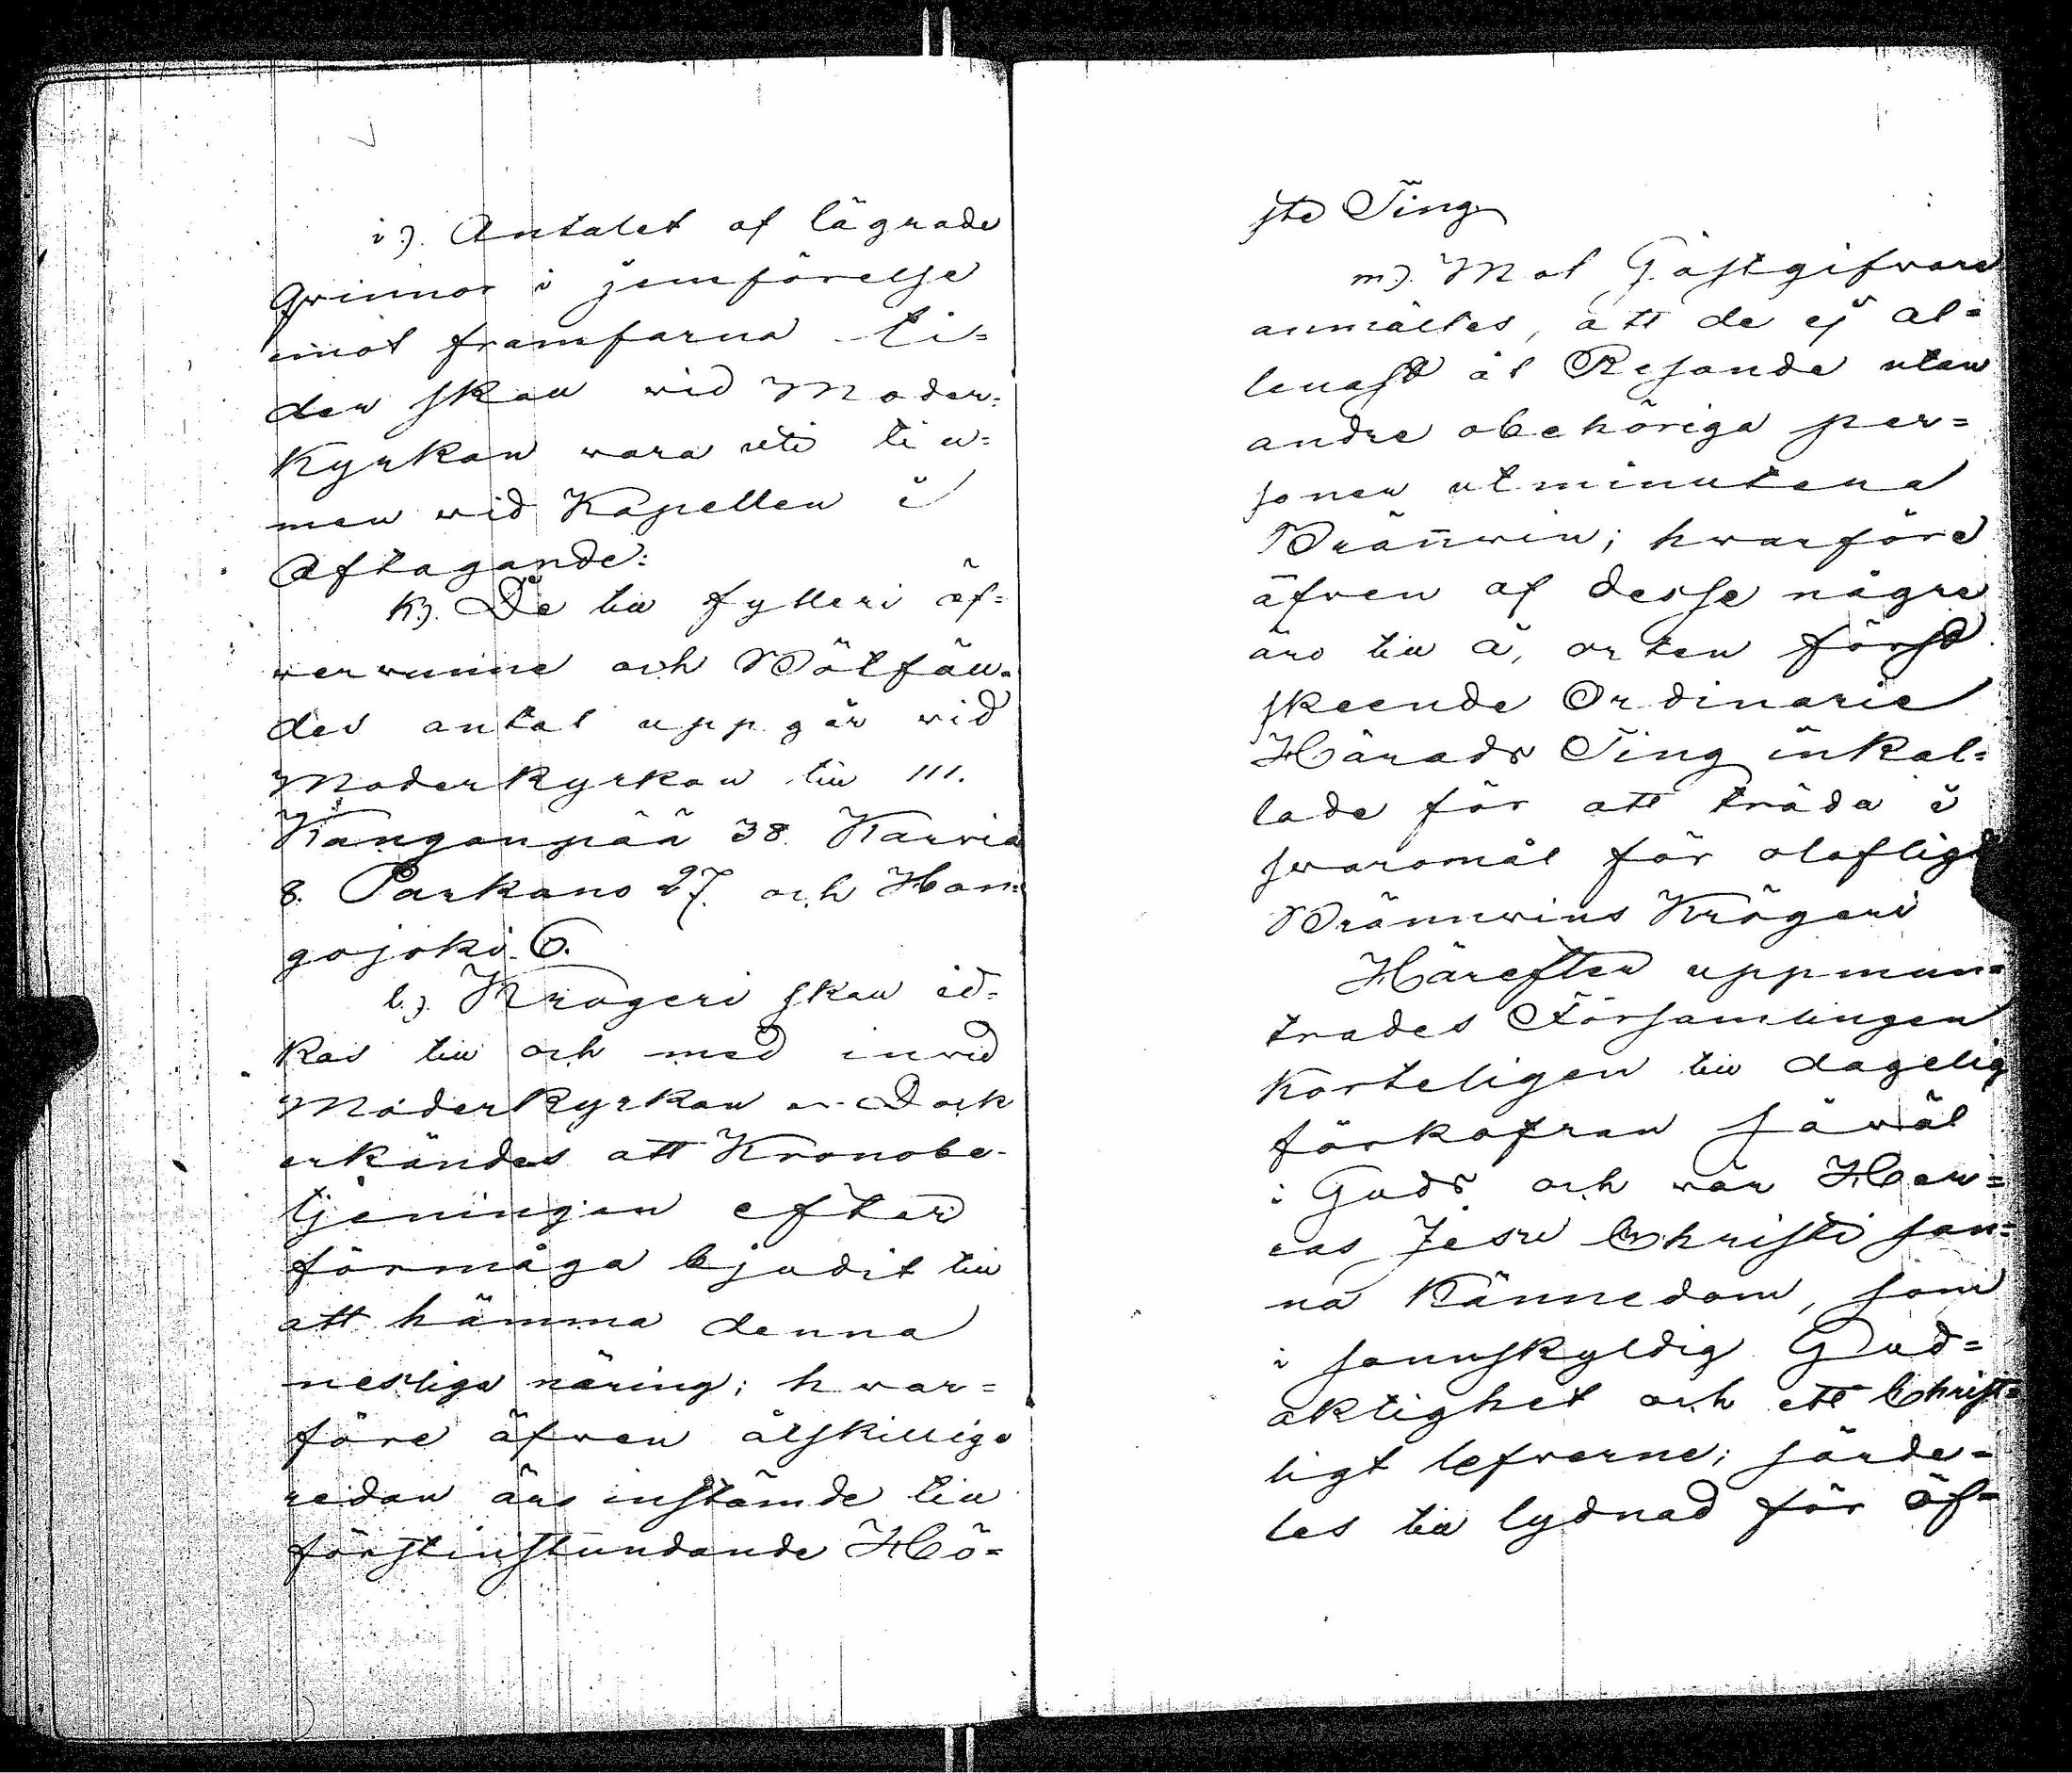 i.). Antalet af lägrade
Qwinnor i jemförelse
imot framfarna ti=
der skall wid Moder=
Kyrkan wara uti till=
men wid Kapellen i
Aftagande:
K). De till fylleri öf=
werwunne och Bötfäll=
des antal uppgår wid
Moderkyrkan till 111.
Kanganpää 38. Karvia
8. Parkano 27. och Hon=
gojoki 6.
l.). Krögeri skall id=
kas till och med inwid
Moderkyrkan Dock
erkändes att Kronobe-
tjeningen efter
förmåga bjudit till
att hämma denna
nesliga näring; hwar=
före äfwen åtskillige
redan äro instämde till
förstinstundande Hö=
ste Ting
m). Mot Gästgifware
anmältes, att de ej al=
lenast åt Resande utan
andre obehöriga per=
soner utminutera
Bränwin; hwarföre
äfwen af desse någre
äro till å, orten först
skeende Ordinarie
Härads Ting inkal=
lade för att träda i
swaromål för oloflig
Brännwins Krögeri
Härefter uppmun=
trades Församlingen
Korteligen till dagelig
förkofran såwäl
i Guds och wår Her=
ras Jesu Christi san=
na Kännedom, som
i sannskyldig Gud=
aktighet och ett Christ=
ligt lefwerne; särde=
les till lydnad för öf=